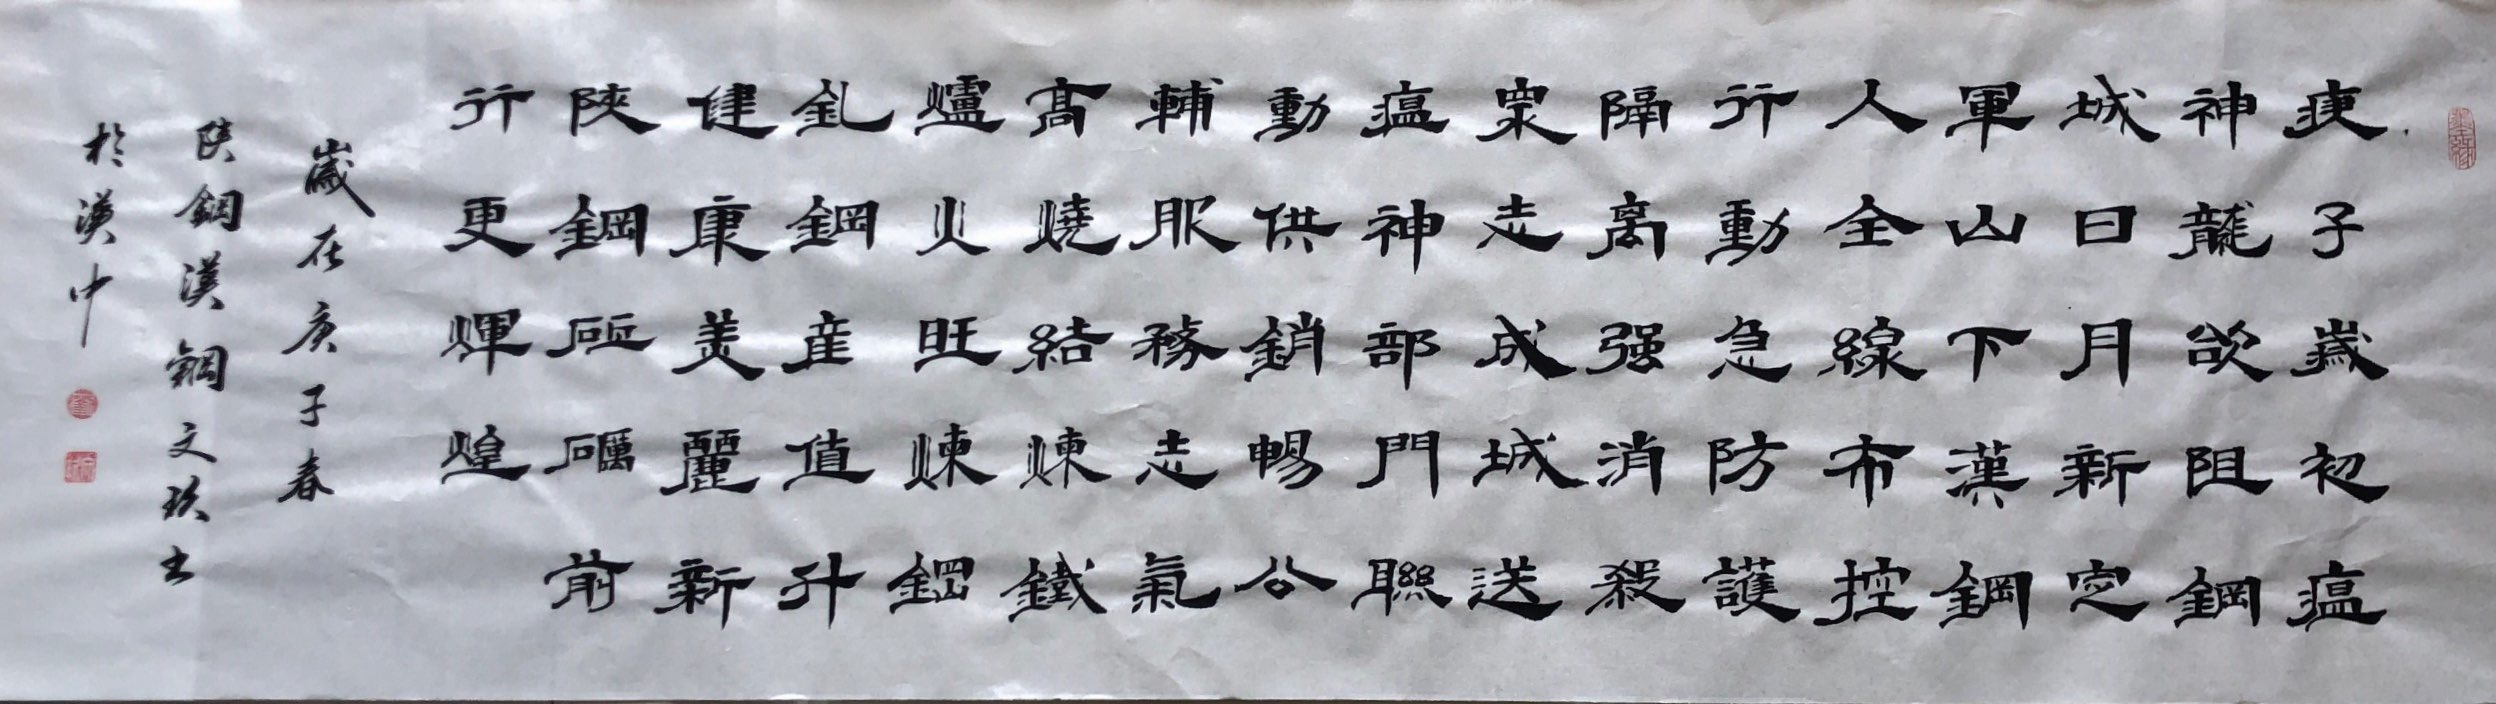 庚子歲初瘟
神龍欲阻鋼
城日月新定
軍山下漢鋼
人全線布控
行動急防護
隔离强消殺
眾志成城送
瘟神部門聯
動供銷暢公
輔服務志氣
高燒結煉鐵
爐火旺煉鋼
釓鋼產值升
健康美麗新
陝鋼砥礪前
行更輝煌
歲在庚子春
陝鋼漢鋼文玖書
於漢中